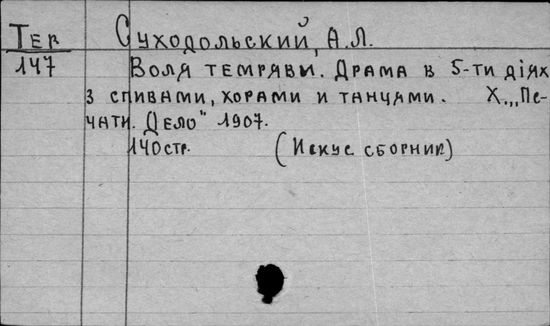 Тер Суходольский, А.Л.
147 Воля темряви. Драма в 5-ти діях
з спивами, хорами и танцями. Х. „Пе-
чати. Дело" 1907.
140 стр. (Искус сборник)